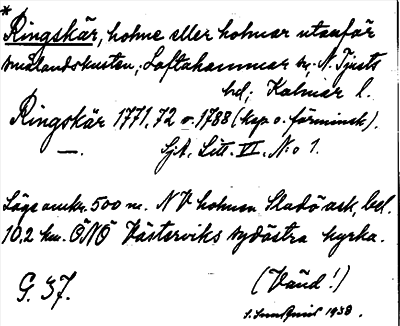 *
Ringskär, holme eller holmar utanför
smålandskusten, Loftahammar sn, N. Tjusts
hd, Kalmar l.
Ringskär 1771, 72 o. 1788 (kop. o. förminsk).
— . Sjk. Litt. VI. N:o 1.
Läge omkr. 500 m. NV holmen Sladö ask, bel.
10,2 km. ÖNÖ Västerviks sydöstra kyrka.
G. 37. (Vänd!)
1938.